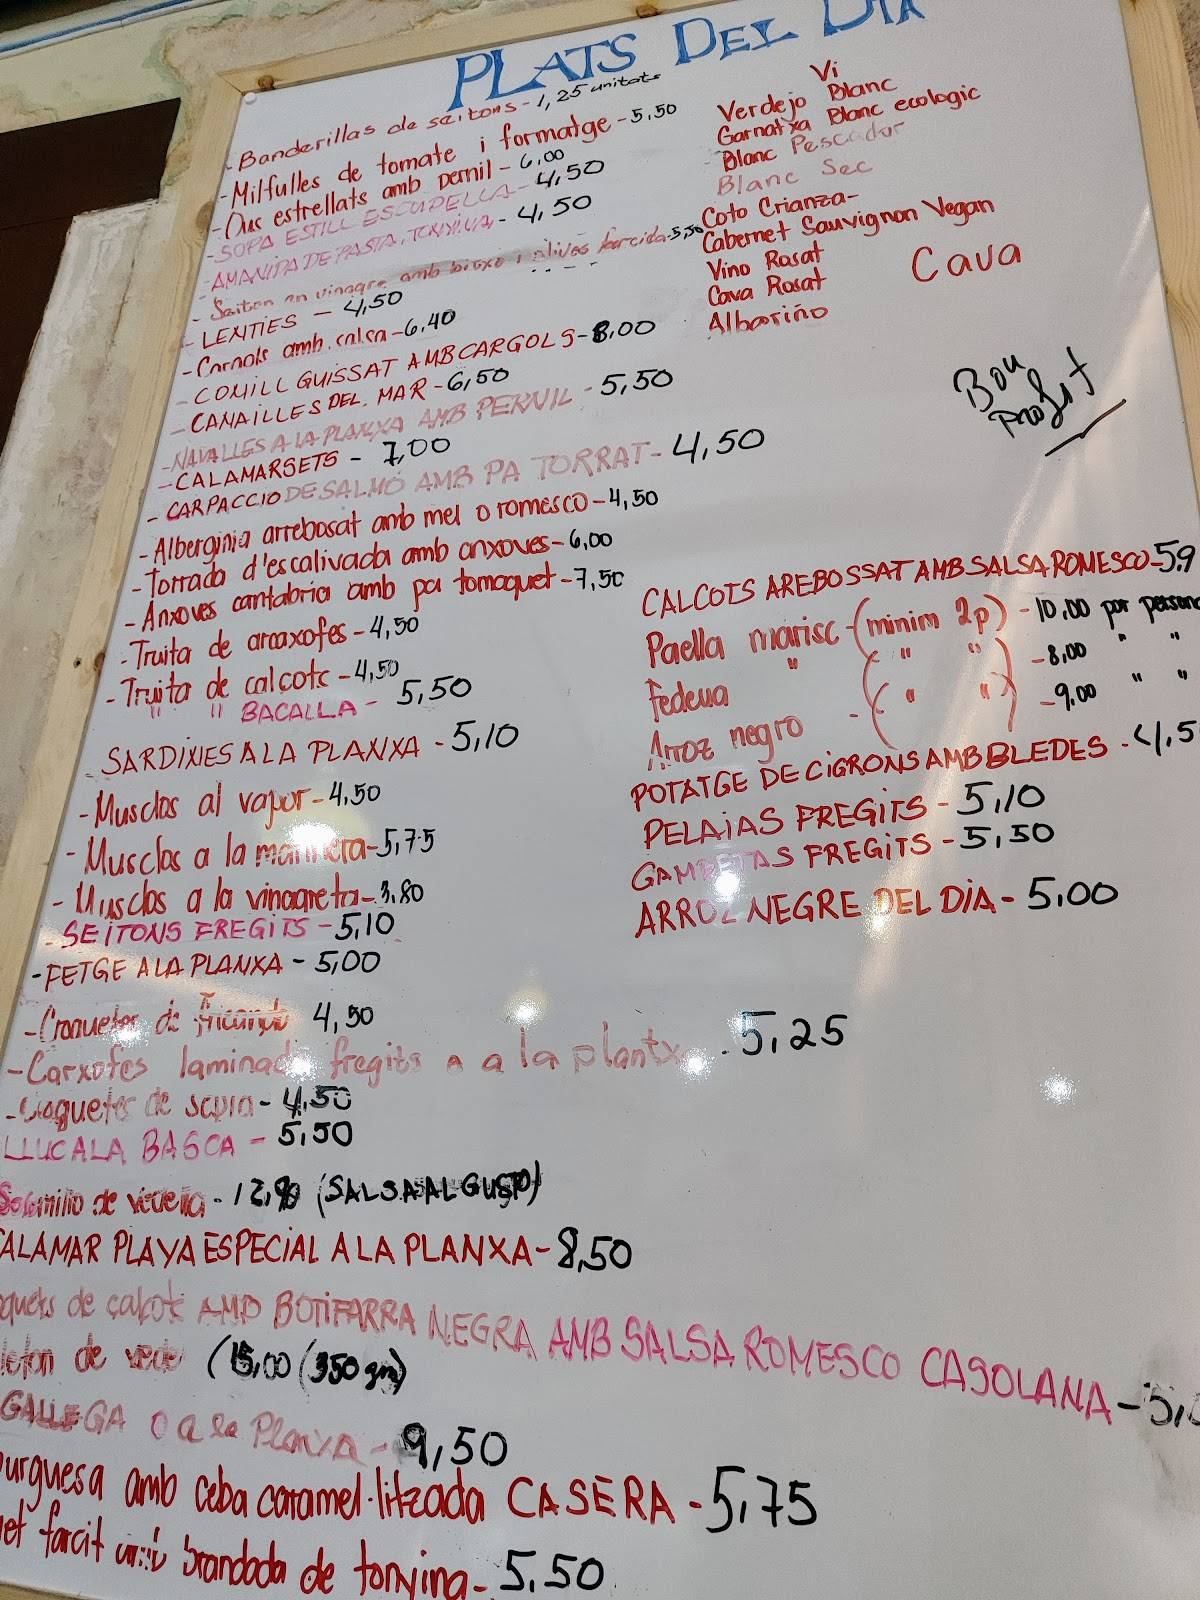 PLATS DEL DIA
- Banderillas de seitons - 1,25 unitats
- Milfulles de tomate i formatge - 5,50
- Ous estrellats amb pernil - 6,00
- SOPA ESTILL ESCUDELLA - 4,50
- AMANIDA DE PASTA, TONYINA, - 4,50
- Seiton en vinagre amb bitxo i olives farcida - 5,50
- LENTIES - 4,50
- Cargols amb salsa - 6,40
- CONILL GUISSAT AMB CARGOLS - 8,00
- CANAILLES DEL MAR - 6,50
- NAVALLES A LA PLANXA AMB PERNIL - 5,50
- CALAMARSETS - 7,00
- CARPACCIO DE SALMÓ AMB PA TORRAT - 4,50
- Alberginia arrebosat amb mel o romesco - 4,50
- Torrada d'escalivada amb anxoves - 6,00
- Anxoves cantabria amb pa tomaquet - 7,50
- Truita de arcaxofes - 4,50
- Truita de calcots - 4,50
" " BACALLA - 5,50
SARDINIES A LA PLANXA - 5,10
- Musclos al vapor - 4,50
- Musclos a la marinera - 5,75
- Musclos a la vinagreta - 3,80
- SEITONS FREGITS - 5,10
- FETGE A LA PLANXA - 5,00
- Croquetes de Fricando 4,50
- Carxofes laminad fregits o a la plantx - 5,25
- Croquetes de sepia - 4,50
LLUC A LA BASCA - 5,50
Solomillo de vedella - 12,90 (SALSA AL GUSTO)
CALAMAR PLAYA ESPECIAL A LA PLANXA - 8,50
quets de calcots AMB BOTIFARRA NEGRA AMB SALSA ROMESCO CASOLANA - 5,
leton de vede (15,00 (350 gm)
GALLEGA o a la Planxa - 9,50
urguesa amb ceba caramel·litzada CASERA - 5,75
et farcit amb brandada de tonyina - 5,50
Vi
Verdejo Blanc
Garnatxa Blanc ecologic
Blanc Pescador
Blanc Sec
Coto Crianza -
Cabernet Sauvignon Vegan
Vino Rosat
Cava Rosat
Albariño
Cava
Bou
Profit
CALCOTS AREBOSSAT AMB SALSA ROMESCO - 5.9
Paella marisc - (minim 2p) - 10,00 por persona
Fedeua " ( " " ) - 8,00 " "
Arroz negro - ( " " ) - 9,00 " "
POTATGE DE CiGRONS AMB BLEDES - 4,5
PELAiAS FREGiTS - 5,10
GAMBETAS FREGiTS - 5,50
ARROZ NEGRE DEL DiA - 5,00